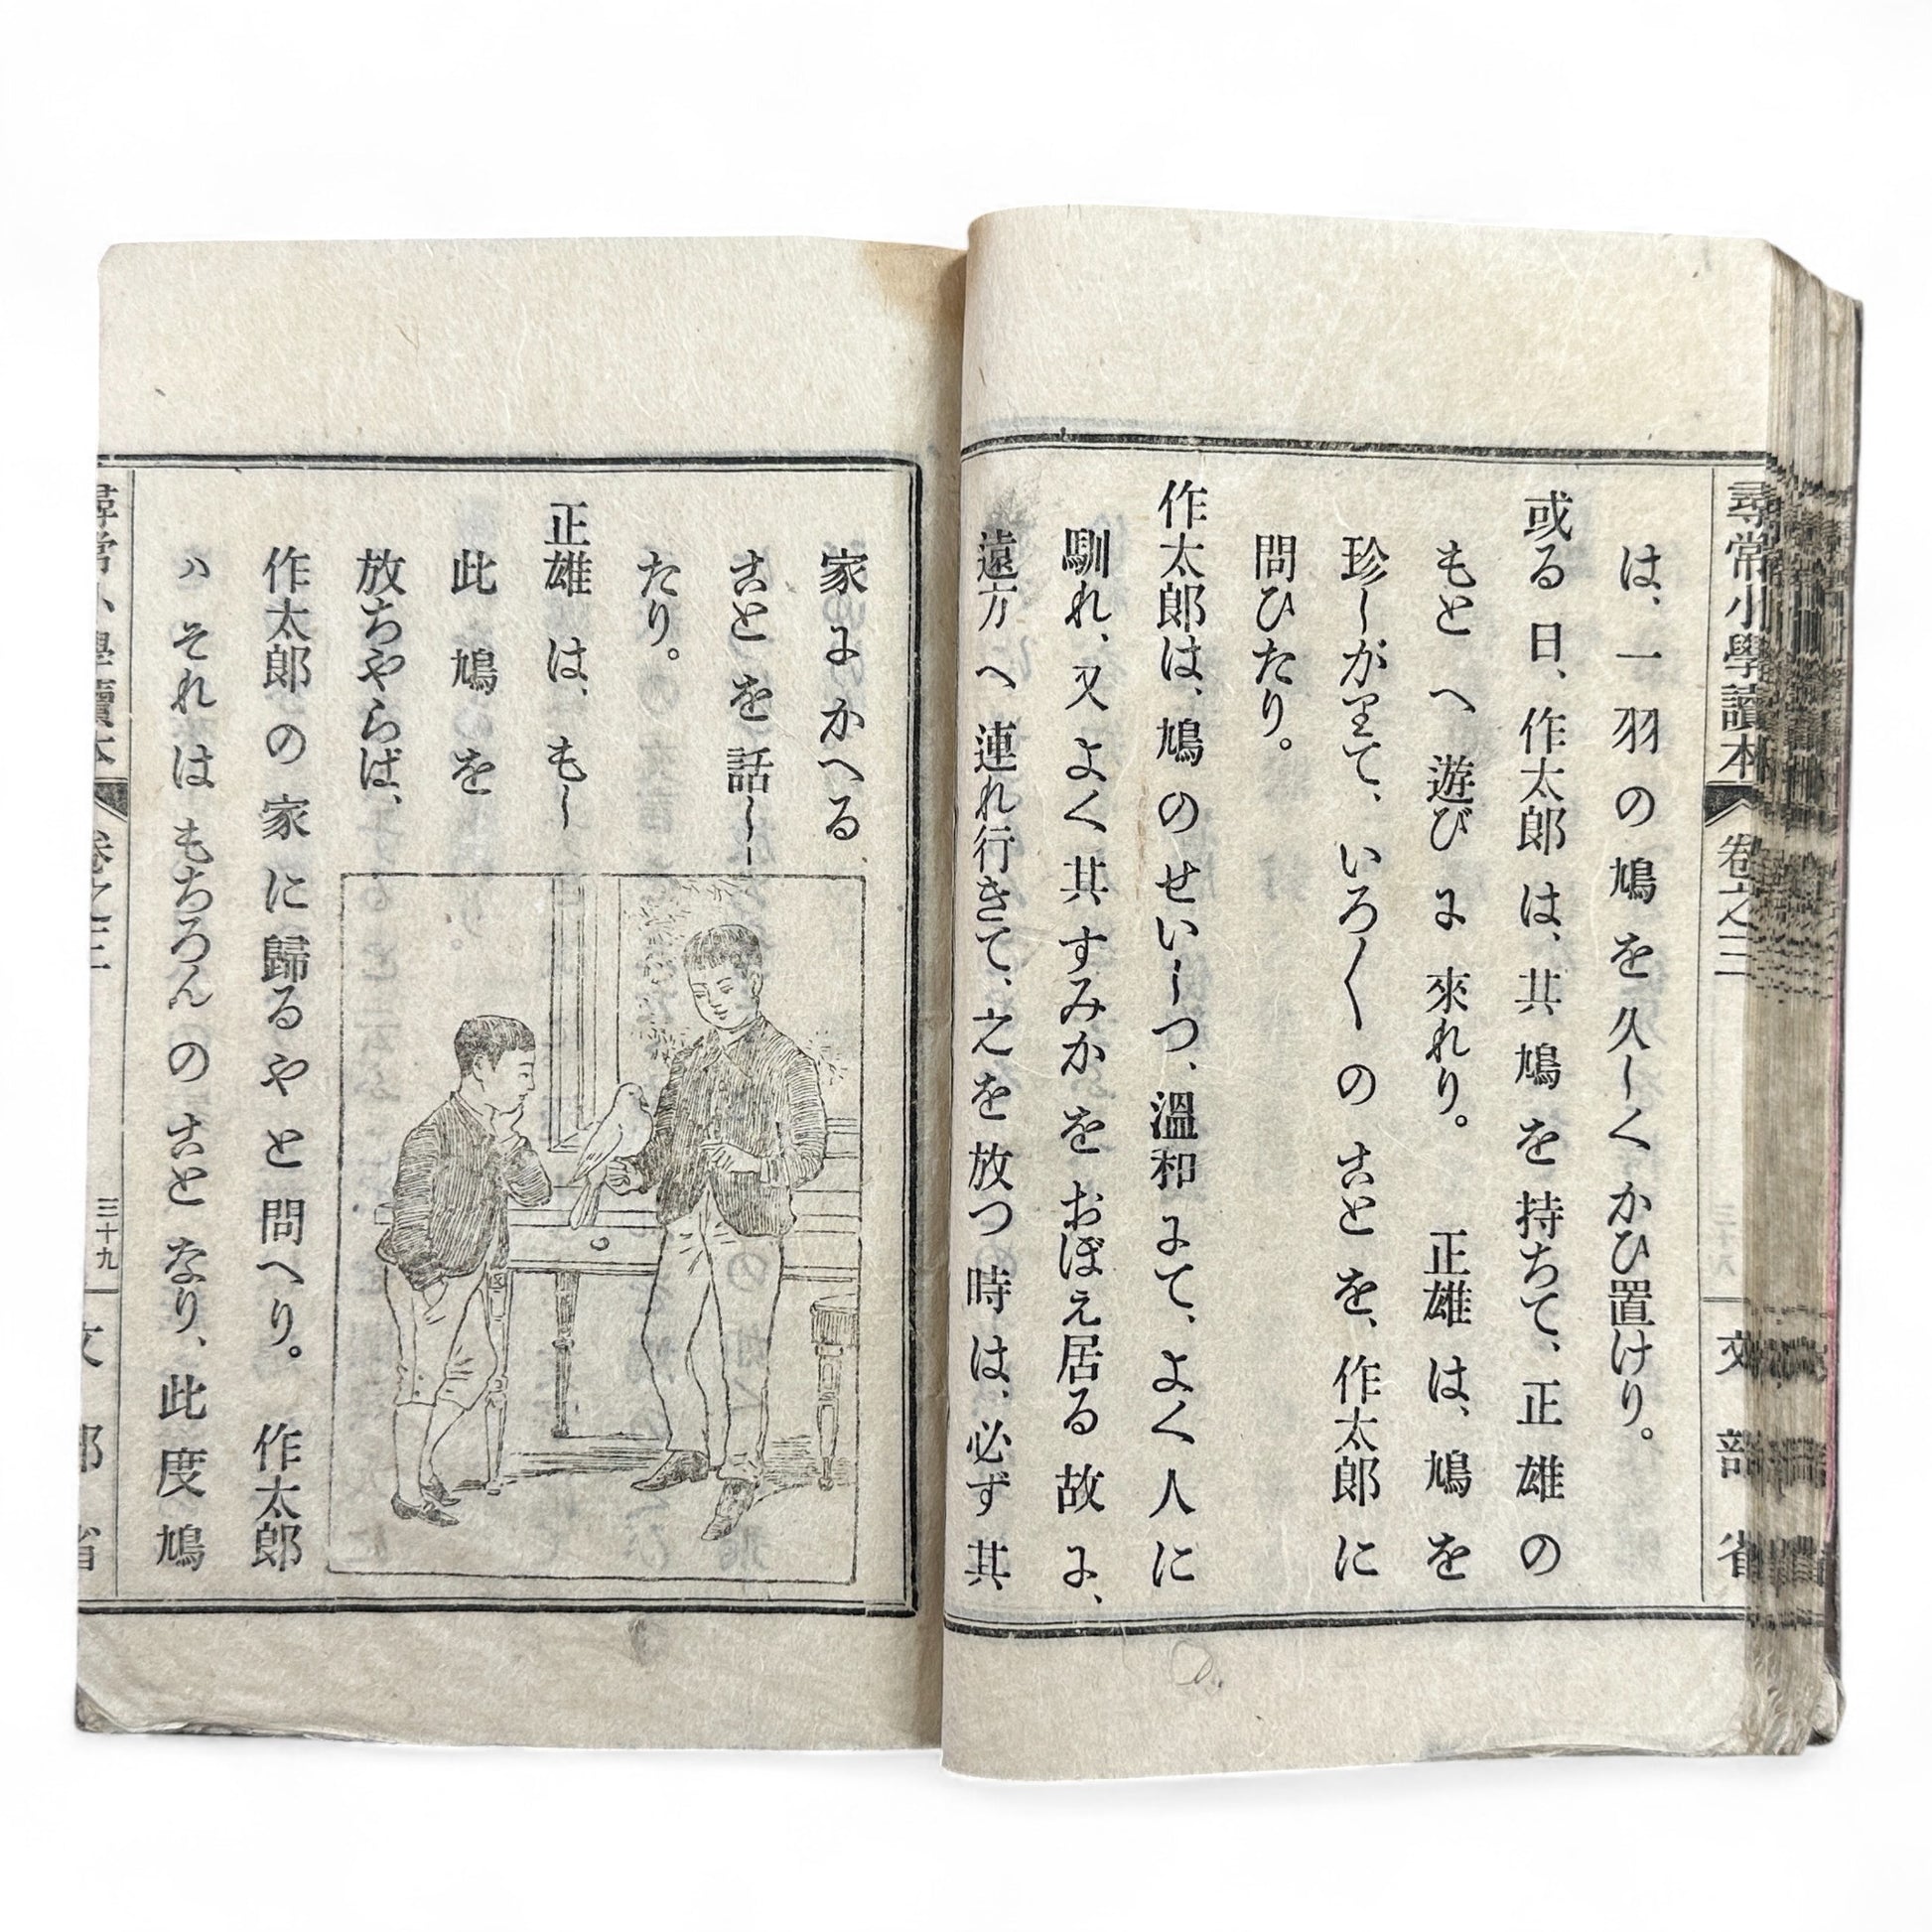 尋常小學讀本 卷之三 文部省
は、一羽の鳩を久しくかひ置けり。
或る日、作太郎は、其鳩を持ちて、正雄の
もとへ遊びに來れり。 正雄は、鳩を
珍しがりて、いろ〳〵のことを、作太郎に
問ひたり。
作太郎は、鳩のせいしつ、溫和にて、よく人に
馴れ、又よく其すみかをおぼえ居る故に、
遠方へ連れ行きて、之を放つ時は、必ず其
家にかへる
ことを話し
たり。
正雄は、もし
此鳩を
放ちやらば、
作太郎の家に歸るやと問へり。 作太郎
ハそれはもちろんのことなり、此度鳩
尋常小學讀本 卷之三 三十九 文部省